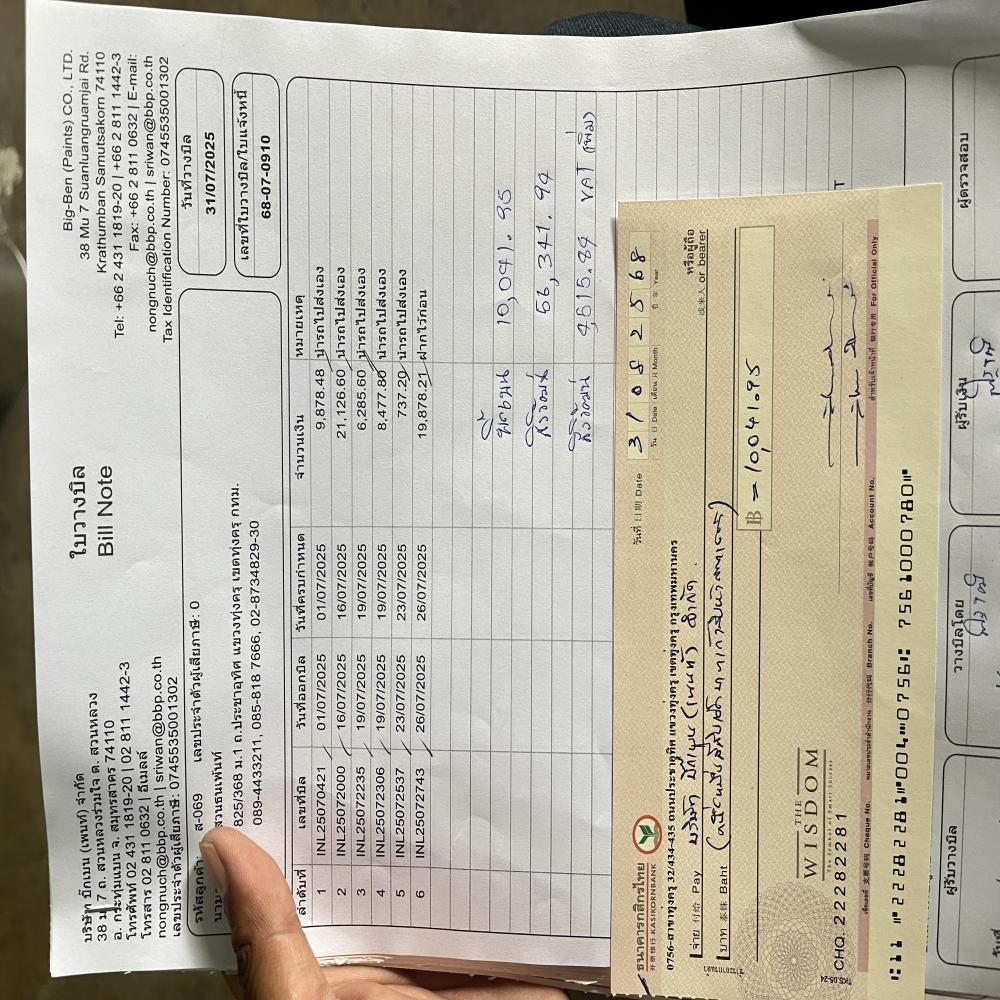 บริษัท บิ๊กเบน (เพนท์) จำกัด
38 ม.7 ถ. สวนหลวงร่วมใจ ต. สวนหลวง
อ. กระทุ่มแบน จ. สมุทรสาคร 74110
โทรศัพท์ 02 431 1819-20 | 02 811 1442-3
โทรสาร 02 811 0632 | อีเมลล์
nongnuch@bbp.co.th | sriwan@bbp.co.th
เลขประจำตัวผู้เสียภาษี: 0745535001302
ใบวางบิล
Bill Note
Big-Ben (Paints) CO., LTD.
38 Mu 7 Suanluangruamjai Rd.
Krathumban Samutsakorn 74110
Tel: +66 2 431 1819-20 | +66 2 811 1442-3
Fax: +66 2 811 0632 | E-mail:
nongnuch@bbp.co.th | sriwan@bbp.co.th
Tax Identification Number: 0745535001302
รหัสลูกค้า: ส-069 เลขประจำตัวผู้เสียภาษี: 0
นาม สวนธนเพ้นท์
825/368 ม.1 ถ.ประชาอุทิศ แขวงทุ่งครุ เขตทุ่งครุ กทม.
089-4433211, 085-818 7666, 02-8734829-30
วันที่วางบิล
31/07/2025
เลขที่ใบวางบิล/ใบแจ้งหนี้
68-07-0910
ลำดับที่ เลขที่บิล วันที่ออกบิล วันที่ครบกำหนด จำนวนเงิน หมายเหตุ
1 INL25070421 01/07/2025 01/07/2025 9,878.48 นำรถไปส่งเอง
2 INL25072000 16/07/2025 16/07/2025 21,126.60 นำรถไปส่งเอง
3 INL25072235 19/07/2025 19/07/2025 6,285.60 นำรถไปส่งเอง
4 INL25072306 19/07/2025 19/07/2025 8,477.80 นำรถไปส่งเอง
5 INL25072537 23/07/2025 23/07/2025 737.20 นำรถไปส่งเอง
6 INL25072743 26/07/2025 26/07/2025 19,878.21 ฝากไว้ก่อน
10,041.95
56,341.94
4,515.89 VAT (เพิ่ม)
ธนาคารกสิกรไทย
开泰银行 KASIKORNBANK
0756-สาขาทุ่งครุ 32/434-435 ถนนประชาอุทิศ แขวงทุ่งครุ เขตทุ่งครุ กรุงเทพมหานคร
วันที่ 日期 Date 31082568
วัน 日 Date เดือน 月 Month ปี 年 Year
จ่าย 付给 Pay บริษัท บิ๊กเบน (เพนท์) จำกัด
หรือผู้ถือ
或来人 or bearer
บาท 泰铢 Baht (หนึ่งหมื่นสี่สิบเอ็ดบาทเก้าสิบห้าสตางค์)
฿ = 10,041.95
THE
WISDOM
The Symbol of Smart Success
TKS.05-24
CHQ.22282281
เช็คเลขที่ 支票号码 Cheque No. หมายเลขประจำสำนักงาน 分行代码 Branch No. เลขที่บัญชี 帐户号码 Account No. สำหรับเจ้าหน้าที่ 银行专用 For Official Only
22282281 004 0756 7561000780
ผู้รับวางบิล
วางบิลโดย
ผู้รับเงิน
ผู้ตรวจสอบ
วันที่